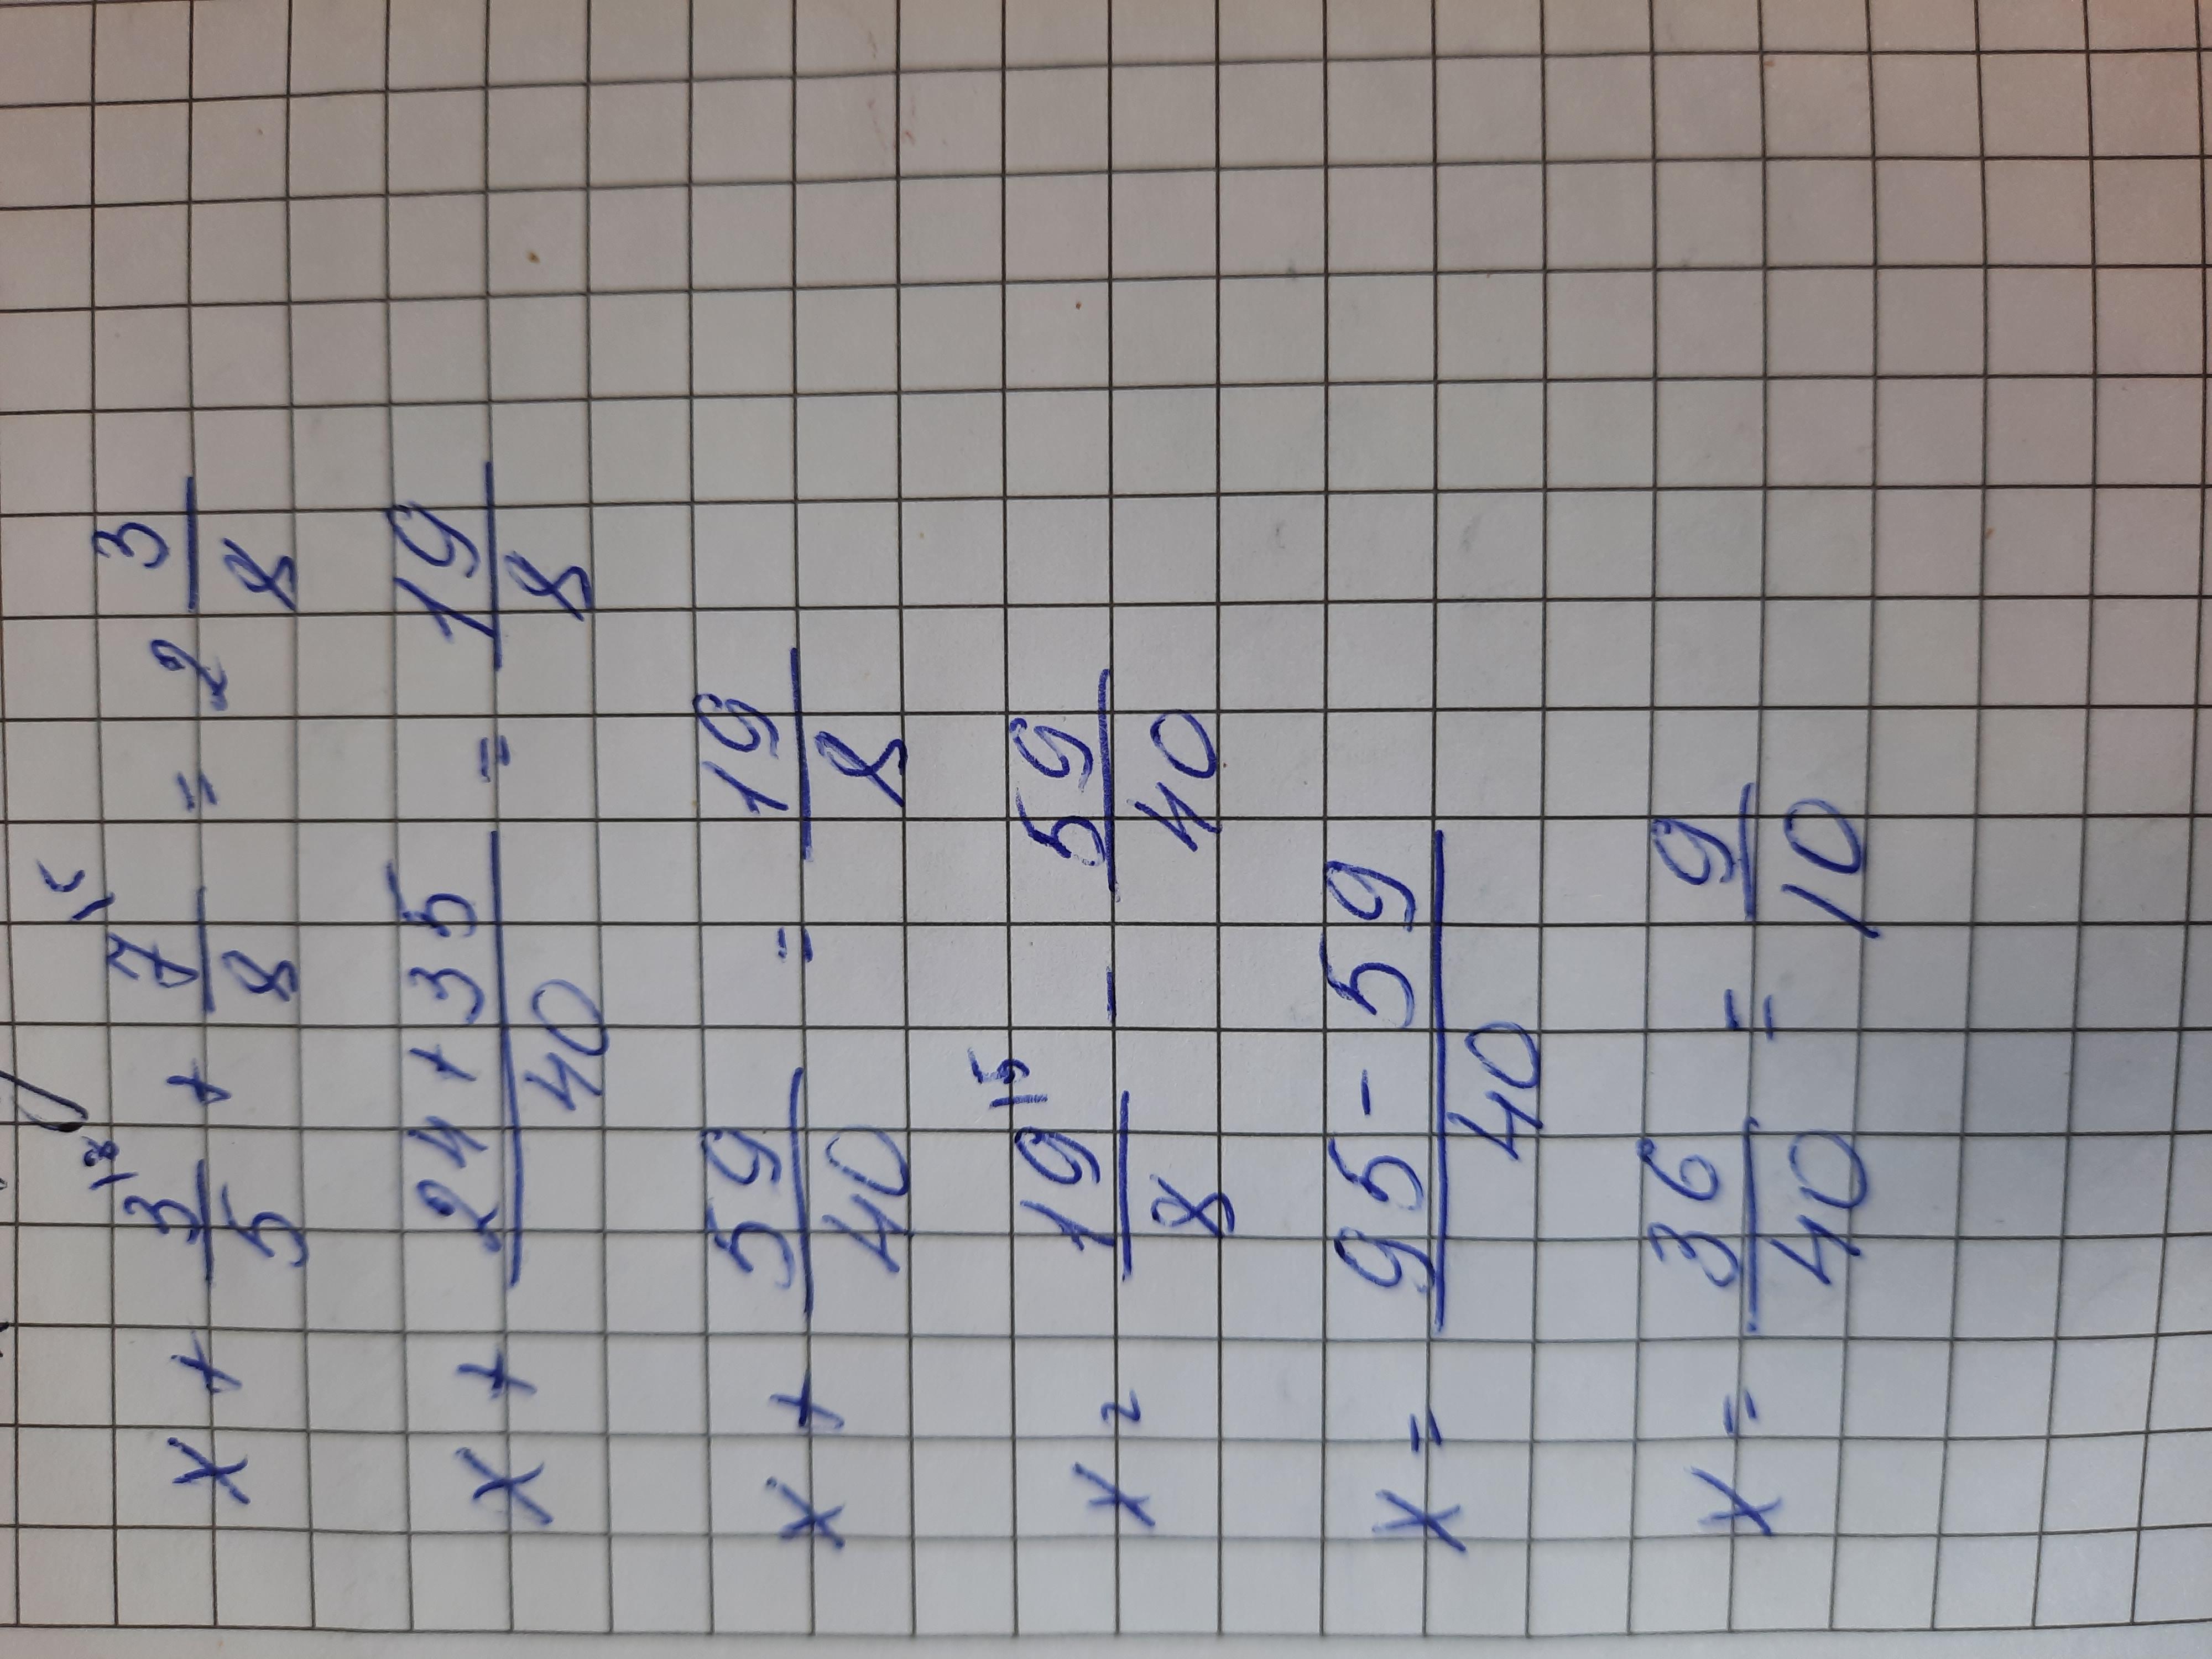 x + 3/5 |8 + 7/8 |5 = 2 3/8
x + 24+35/40 = 19/8
x + 59/40 = 19/8
x = 19/8 |5 - 59/40
x = 95-59/40
x = 36/40 = 9/10